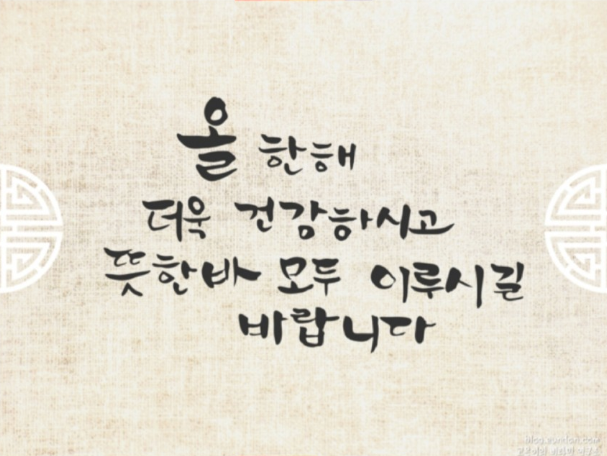 올 한해
더욱 건강하시고
뜻한바 모두 이루시길
바랍니다